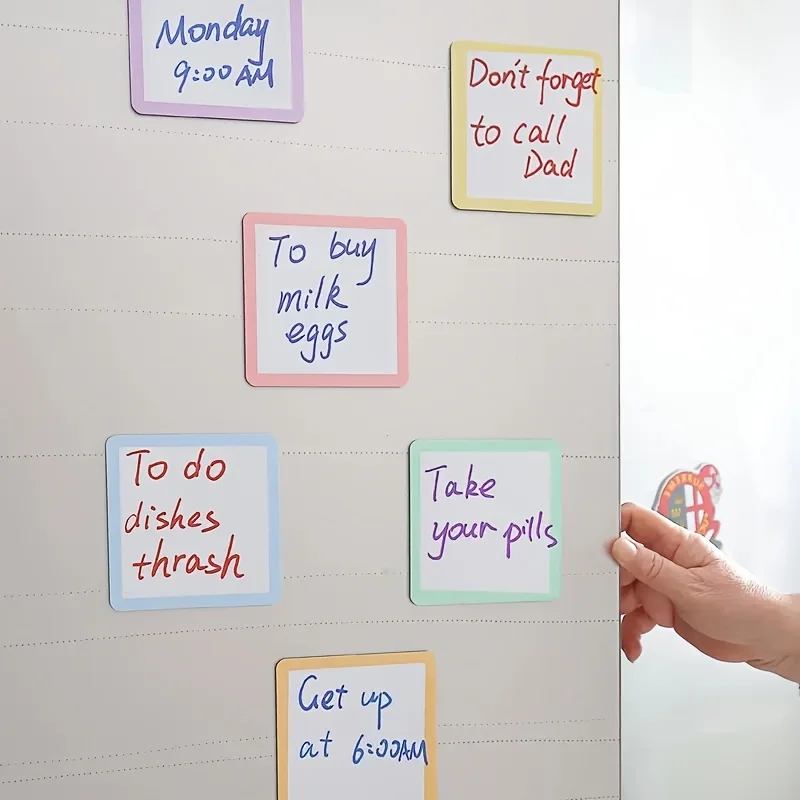 Monday
9:00 AM
Don't forget
to call
Dad
To buy
milk
eggs
To do
dishes
thrash
Take
your pills
Get up
at 6:00AM